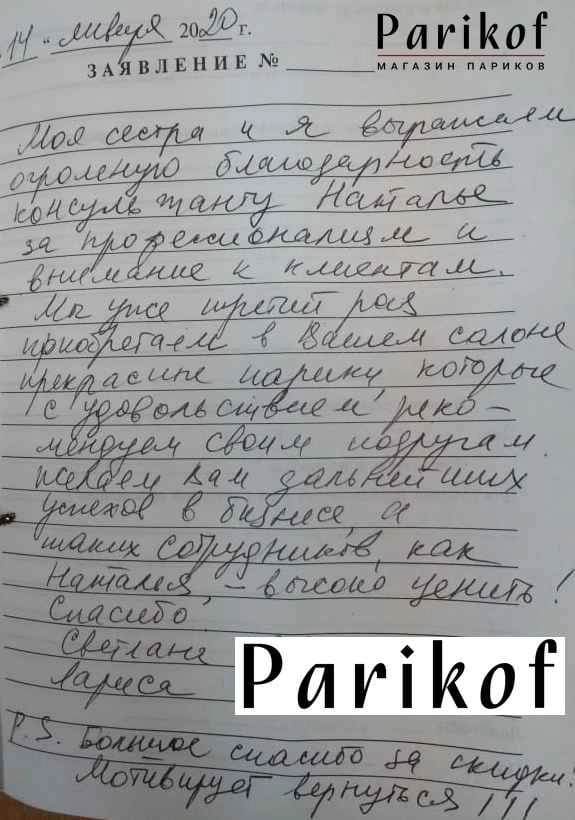 Parikof
МАГАЗИН ПАРИКОВ
14 " января 2020 г.
ЗАЯВЛЕНИЕ №
Моя сестра и я выражаем
огромную благодарность
консультанту Наталье
за профессионализм и
внимание к клиентам.
Мы уже третий раз
приобретаем в Вашем салоне
прекрасные парики, которые
с удовольствием реко-
мендуем своим подругам.
Желаем Вам дальнейших
успехов в бизнесе, а
таких сотрудников, как
Наталья, – высоко ценить!
Спасибо
Светлане
Лариса
Parikof
P.S. Большое спасибо за скидки!
Мотивирует вернуться !!!